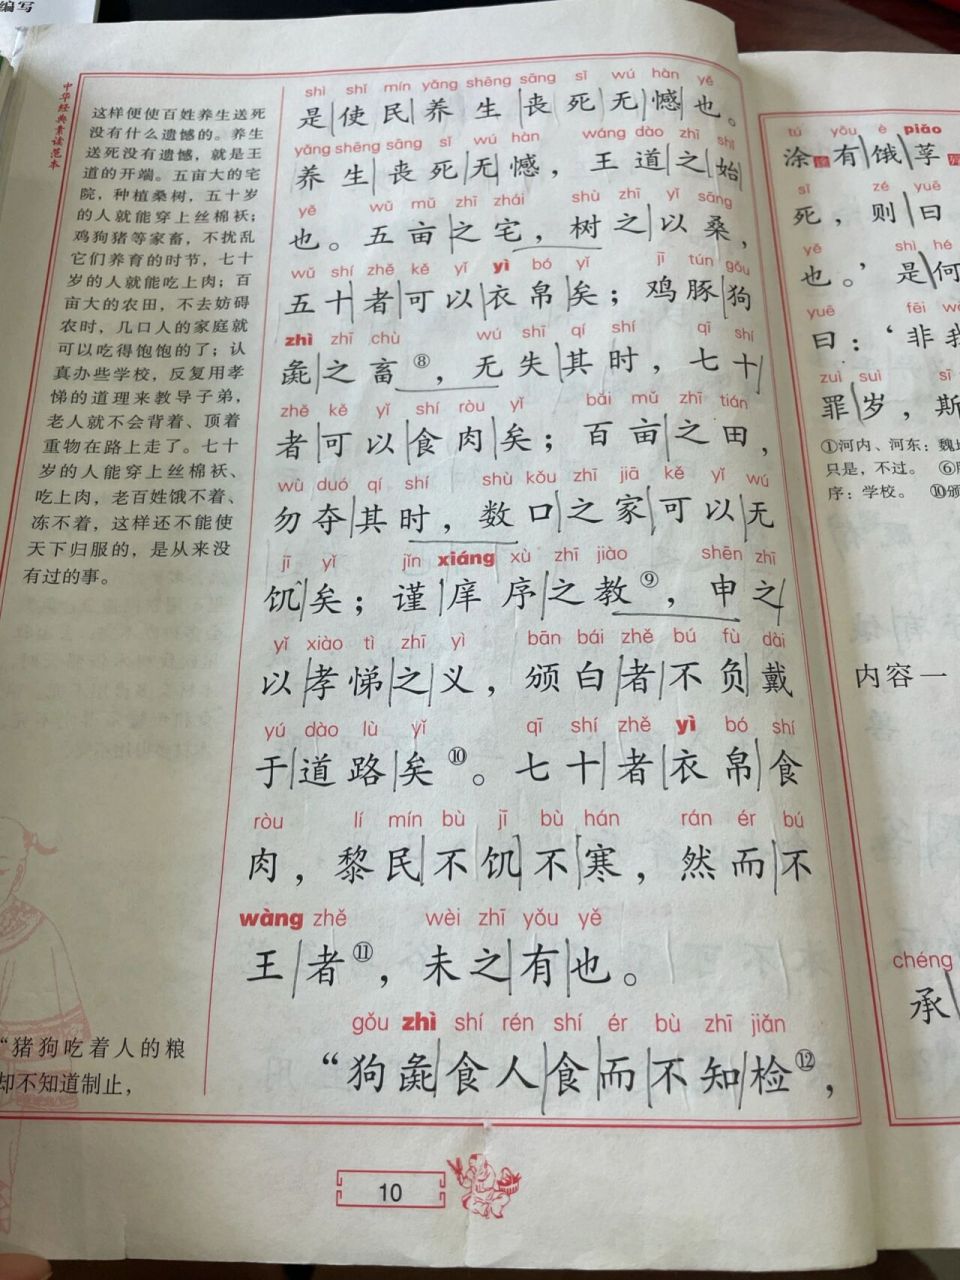 编写
中华经典素读范本
这样便使百姓养生送死
没有什么遗憾的。养生
送死没有遗憾，就是王
道的开端。五亩大的宅
院，种植桑树，五十岁
的人就能穿上丝棉袄；
鸡狗猪等家畜，不扰乱
它们养育的时节，七十
岁的人就能吃上肉；百
亩大的农田，不去妨碍
农时，几口人的家庭就
可以吃得饱饱的了；认
真办些学校，反复用孝
悌的道理来教导子弟，
老人就不会背着、顶着
重物在路上走了。七十
岁的人能穿上丝棉袄、
吃上肉，老百姓饿不着、
冻不着，这样还不能使
天下归服的，是从来没
有过的事。
“猪狗吃着人的粮
却不知道制止，
shì shǐ mín yǎng shēng sāng sǐ wú hàn yě
是使民养生丧死无憾也。
yǎng shēng sāng sǐ wú hàn wáng dào zhī shǐ
养生丧死无憾，王道之始
yě wǔ mǔ zhī zhái shù zhī yǐ sāng
也。五亩之宅，树之以桑，
wǔ shí zhě kě yǐ yì bó yǐ jī tún gǒu
五十者可以衣帛矣；鸡豚狗
zhì zhī chù wú shī qí shí qī shí
彘之畜⑧，无失其时，七十
zhě kě yǐ shí ròu yǐ bǎi mǔ zhī tián
者可以食肉矣；百亩之田，
wù duó qí shí shù kǒu zhī jiā kě yǐ wú
勿夺其时，数口之家可以无
jī yǐ jǐn xiáng xù zhī jiào shēn zhī
饥矣；谨庠序之教⑨，申之
yǐ xiào tì zhī yì bān bái zhě bú fù dài
以孝悌之义，颁白者不负戴
yú dào lù yǐ qī shí zhě yì bó shí
于道路矣⑩。七十者衣帛食
ròu lí mín bù jī bù hán rán ér bú
肉，黎民不饥不寒，然而不
wàng zhě wèi zhī yǒu yě
王者⑪，未之有也。
gǒu zhì shí rén shí ér bù zhī jiǎn
“狗彘食人食而不知检⑫，
10
tú yǒu è piǎo
涂有饿莩
sǐ zé yuē
死，则曰
yě shì hé
也。’是何
yuē fēi
曰：‘非我
zuì suì sī
罪岁，斯
①河内、河东：魏
只是，不过。⑥
序：学校。⑩颁
内容一
chéng
承